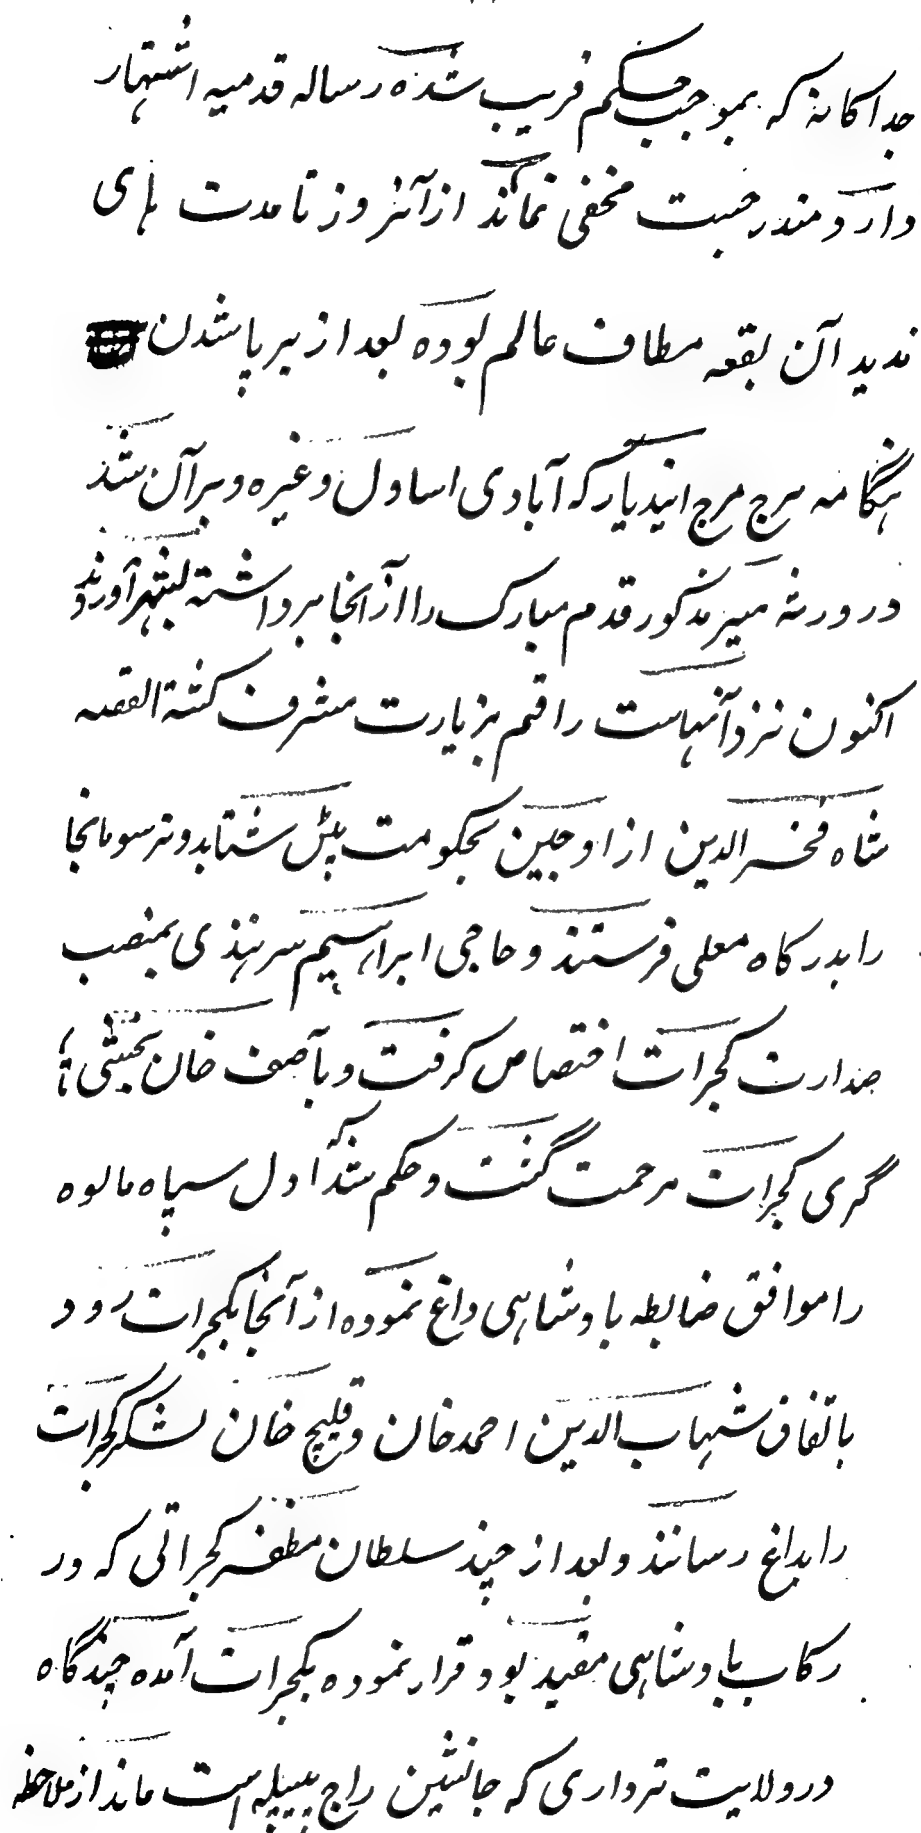 جداکانه که بموجب حکم قریب شده رساله قدمیه اشتهار
دارد مندرجست مخفی نماند از آنروز تا مدت های
ندید آن بقعه مطاف عالم بوده بعد از برپا شدن
هنگامه هرج مرج اینديار که آبادی اساول وغیره ویرآن شد
در ورثه میر مذکور قدم مبارک را از آنجا برداشته بشهر آوردند
اکنون نزد آنهاست راقم بزیارت مشرف کشته القصه
شاه فخرالدین از اوجین بحکومت پتن شتابد و ترسومانجا
را بدرکاه معلی فرستند و حاجی ابراهیم سرهندی بمنصب
صدارت کجرات اختصاص کرفت و باصف خان بخشی
گری کجرات مرحمت گشت و حکم شد که اول سپاه مالوه
را موافق ضابطه بادشاهی داغ نموده از آنجا بکجرات رود
باتفاق شهاب الدین احمد خان و قلیچ خان لشکر کجرات
را بداغ رسانند و بعد از چند سلطان مظفر کجراتی که در
رکاب بادشاهی مقید بود قرار نموده بکجرات آمده چند گاه
در ولایت ترواری که جانشین راج پیپله است ماند از ملاحظه